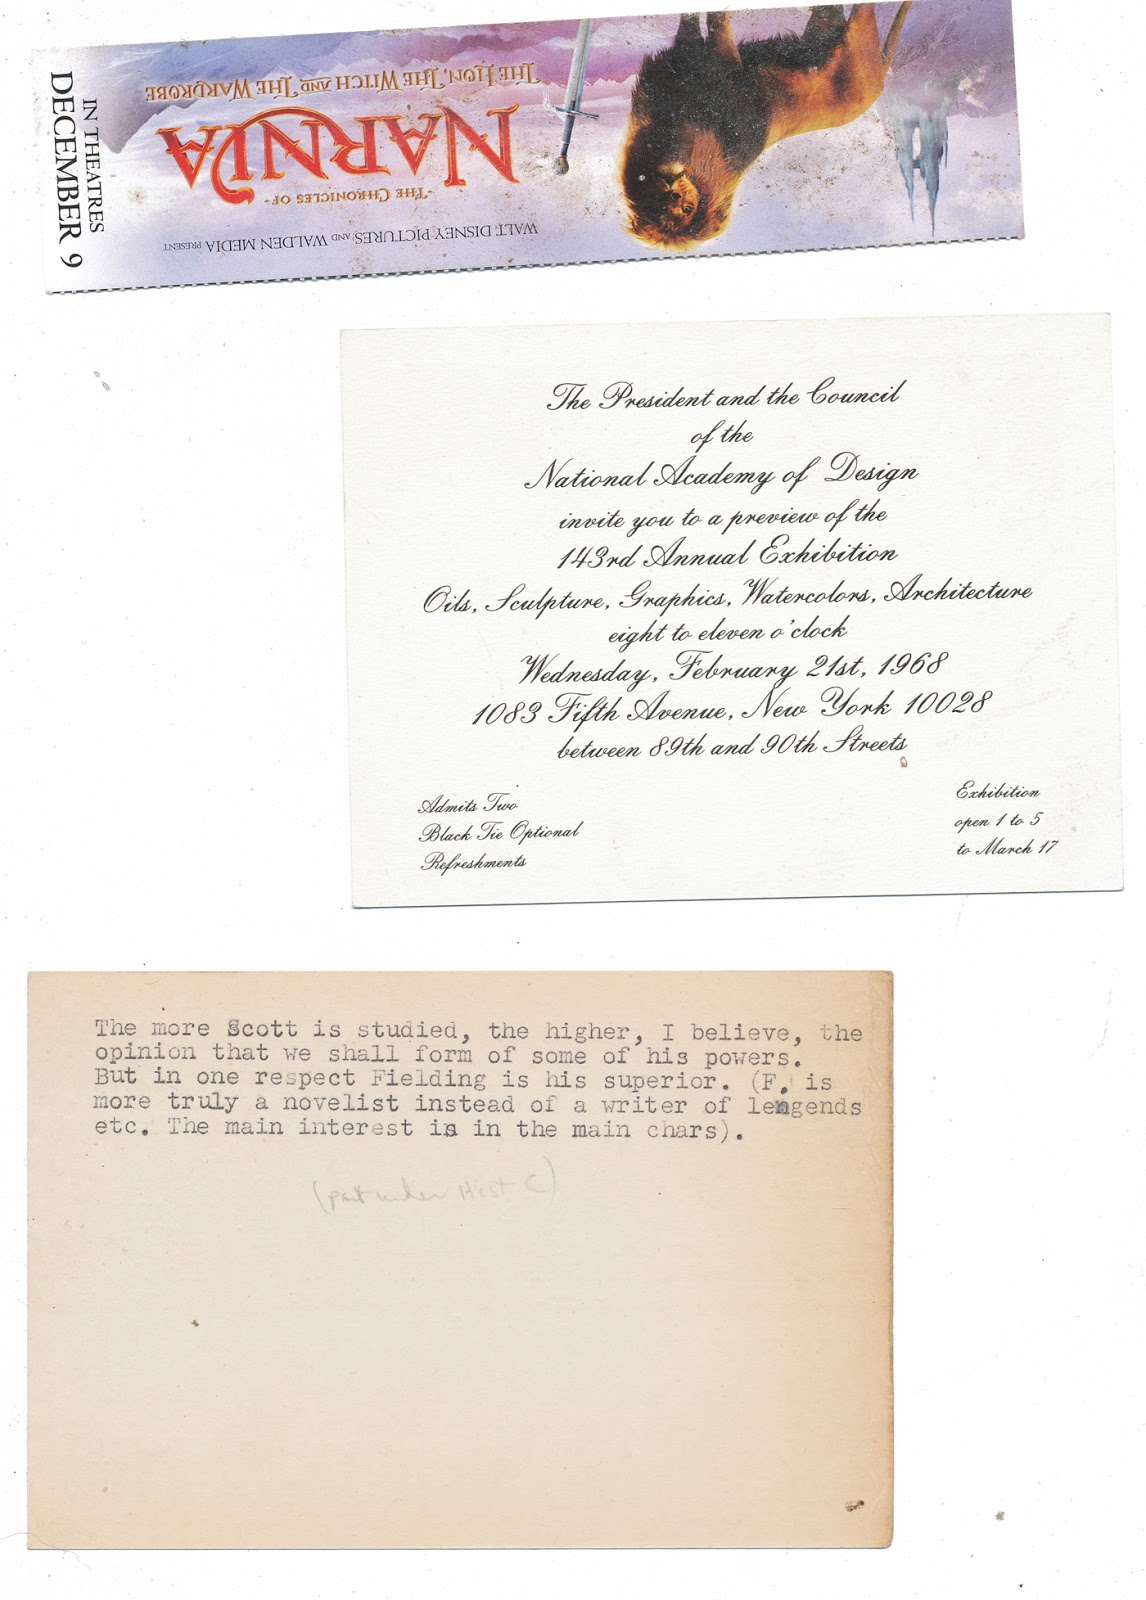 WALT DISNEY PICTURES AND WALDEN MEDIA PRESENT
THE CHRONICLES OF
NARNIA
THE LION, THE WITCH AND THE WARDROBE
IN THEATRES
DECEMBER 9
The President and the Council
of the
National Academy of Design
invite you to a preview of the
143rd Annual Exhibition
Oils, Sculpture, Graphics, Watercolors, Architecture
eight to eleven o'clock
Wednesday, February 21st, 1968
1083 Fifth Avenue, New York 10028
between 89th and 90th Streets
Admits Two
Black Tie Optional
Refreshments
Exhibition
open 1 to 5
to March 17
The more Scott is studied, the higher, I believe, the
opinion that we shall form of some of his powers.
But in one respect Fielding is his superior. (F. is
more truly a novelist instead of a writer of lengends
etc. The main interest is in the main chars).
(part under Hist C)